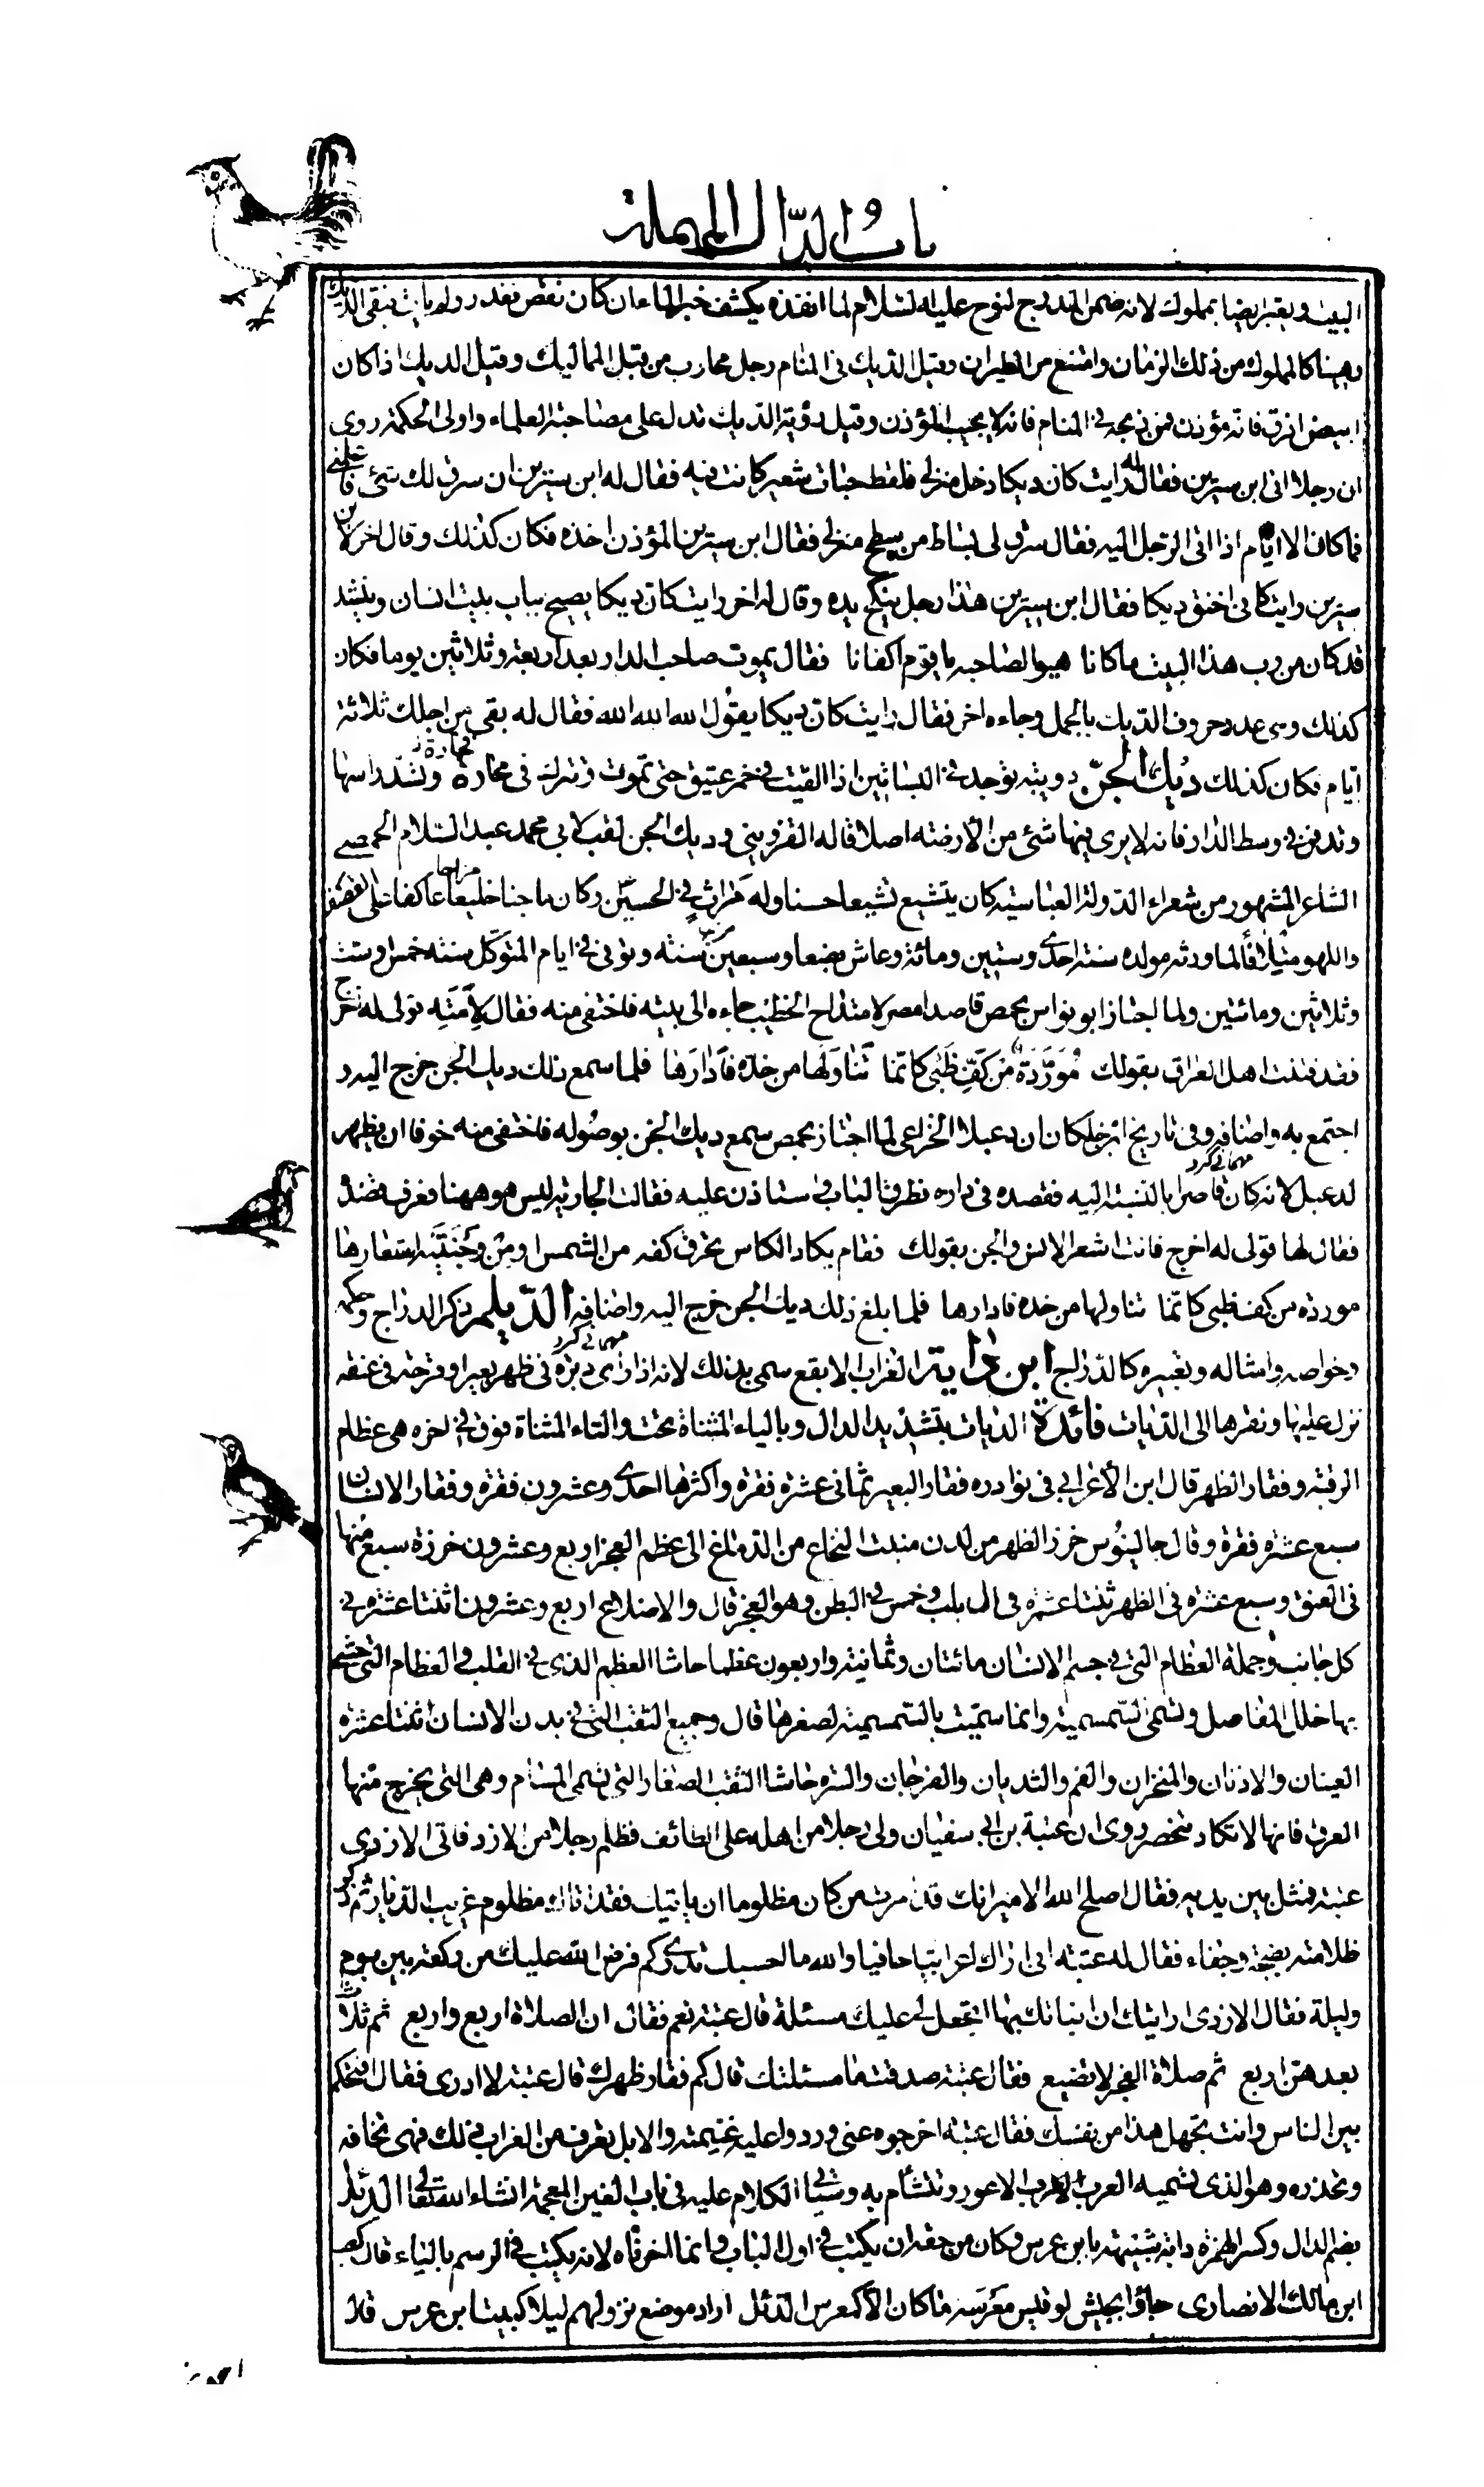 باب الدال المهملة
البيت ويعبر ايضا بمملوك لانه ضمن الدراج لنوح عليه السلام لما انفذه يكشف خبر الماء ان كان نقص فغدر ولم يات فبقى الديك
رهينا كالمملوك من ذلك الزمان وامتنع من الطيران وقيل الديك فى المنام رجل محارب من قبل المماليك وقيل الديك اذا كان
ابيض ازرق فانه مؤذن فمن ذبحه فى المنام فانه لا يجيب المؤذن وقيل رؤية الديك تدل على مصاحبة العلماء واولى الحكمة روى
ان رجلا اتى ابن سيرين فقال له رايت كان ديكا دخل منزلى فلقط حبات شعير كانت فيه فقال له ابن سيرين ان سرق لك شئ فاعلمنى
فما كان الا ايام اذا اتى الرجل اليه فقال سرق لى بساط من سطح منزلى فقال ابن سيرين المؤذن اخذه فكان كذلك وقال اخر لابن
سيرين رايت كانى اخنق ديكا فقال ابن سيرين هذا رجل ينكح يده وقال له اخر رايت كان ديكا يصيح بباب بيت انسان وينشد
قد كان من رب هذا البيت ما كانا هيوا لصاحبه يا قوم اكفانا فقال يموت صاحب الدار بعد اربعة وثلاثين يوما فكان
كذلك وهى عدد حروف الديك بالجمل وجاءه اخر فقال رايت كان ديكا يقول الله الله الله فقال له بقى من اجلك ثلاثة
ايام فكان كذلك ديك الجن دويبة توجد فى البساتين اذا القيت فى خمر عتيق حتى تموت وتترك فى محارة وتسد راسها
وتدفن فى وسط الدار فانه لا يرى فيها شئ من الارضة اصلا قاله القزوينى وديك الجن لقب لابى محمد عبد السلام الحمصى
الشاعر المشهور من شعراء الدولة العباسية كان يتشيع تشيعا حسنا وله مراث فى الحسين وكان ماجنا خليعا عاكفا على القصف
واللهو متلافا لما ورثه مولده سنة احدى وستين ومائة وعاش بضعا وسبعين سنة وتوفى فى ايام المتوكل سنة خمس او ست
وثلاثين ومائتين ولما اجتاز ابو نواس بحمص قاصدا مصر لامتداح الخطيب جاءه الى بيته فاختفى منه فقال لامته قولى له اخرج
فقد فتنت اهل العراق بقولك مُوَرَّدَة مِن كَفّ ظَبى كانما تَناوَلَها من خده فاَدارَها فلما سمع ذلك ديك الجن خرج اليه و
اجتمع به واضافه وفى تاريخ ابن خلكان ان دعبلا الخزاعى لما اجتاز بحمص سمع ديك الجن بوصوله فاختفى منه خوفا ان يظهر
لدعبل لانه كان قاصرا بالنسبة اليه فقصده فى داره فطرق الباب واستاذن عليه فقالت الجارية ليس هو ههنا فعرف قصده
فقال لها قولى له اخرج فانت اشعر الانس والجن بقولك فقام يكاد الكاس يحرق كفه من الشمس او من وجنتيه استعارها
موردة من كف ظبى كانما تناولها من خده فادارها فلما بلغ ذلك ديك الجن خرج اليه واضافه الديلم ذكر الدراج وحكمه
وخواصه وامثاله وتعبيره كالدراج ابن داية الغراب الابقع سمى بذلك لانه اذا راى دبرة فى ظهر بعير او قرحة فى عنقه
نزل عليها ونقرها الى الديات فائدة الديات بتشديد الدال وبالياء المثناة تحت والتاء المثناة فوق فى اخره هى عظام
الرقبة وفقار الظهر قال ابن الاعرابى فى نوادره فقار البعير ثمانى عشرة فقرة واكثرها احدى وعشرون فقرة وفقار الانسان
سبع عشرة فقرة وقال جالينوس خرز الظهر من لدن منبت النخاع من الدماغ الى عظم العجز اربع وعشرون خرزة سبع منها
فى العنق وسبع عشرة فى الظهر ثنتا عشرة فى الصلب وخمس فى البطن وهو العجز قال والاضلاع اربع وعشرون اثنتا عشرة فى
كل جانب وجملة العظام التى فى جسم الانسان مائتان وثمانية واربعون عظما حاشا العظم الذى فى القلب والعظام التى حشى
بها خلل المفاصل وتسمى السمسمية وانما سميت بالسمسمية لصغرها قال وجميع الثقب التى فى بدن الانسان اثنتا عشرة
العينان والاذنان والمنخران والفم والثديان والفرجان والسرة حاشا الثقب الصغار التى تسمى المسام وهى التى يخرج منها
العرق فانها لا تكاد تنحصر روى ان عتبة بن ابى سفيان ولى رجلا من اهله على الطائف فظلم رجلا من الازد فاتى الازدى
عتبة فمثل بين يديه فقال اصلح الله الامير انك قد امرت من كان مظلوما ان ياتيك فقد اتاك مظلوم غريب الديار ثم ذكر
ظلامته بضجة وجفاء فقال له عتبة انى اراك اعرابيا جافيا والله ما احسبك تدرى كم فرض الله عليك من ركعة بين يوم
وليلة فقال الازدى ارايتك ان انباتك بها اتجعل لى عليك مسئلة قال عتبة نعم فقال ان الصلاة اربع واربع ثم ثلاث
بعدهن اربع ثم صلاة الفجر لا تضيع فقال عتبة صدقت ما مسئلتك قال كم فقار ظهرك قال عتبة لا ادرى فقال افتحكم
بين الناس وانت تجهل هذا من نفسك فقال عتبة اخرجوه عنى وردوا عليه غنيمته والابل تعرف من الغراب ذلك فهى تخافه
وتحذره وهو الذى تسميه العرب الاعور وتتشأم به وسياتى الكلام عليه فى باب الغين المعجمة انشاء الله تعالى الدئل
بضم الدال وكسر الهمزة دابة شبيهة بابن عرس وكان من حقه ان يكتب فى اول الباب وانما اخرناه لانه يكتب فى الرسم بالياء قال كعب
ابن مالك الانصارى جاؤا بجيش لو قيس معرسه ما كان الا كمعرس الدئل اراد موضع نزولهم ليلا كبيت ابن عرس قال